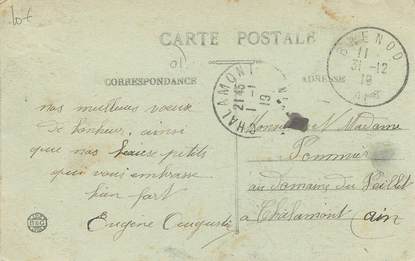 lot
CARTE POSTALE
CORRESPONDANCE
ADRESSE
BRENOD
11
31-12
19
AIN
CHALAMONT
21 45
1-1
19
AIN
nos meilleurs voeux
de bonheur, ainsi
que nos petits
qui vous embrasse
bien fort
Eugène Auguste
Monsieur et Madame
Pommier
au Domaine du
à Chalamont
Ain
B&G